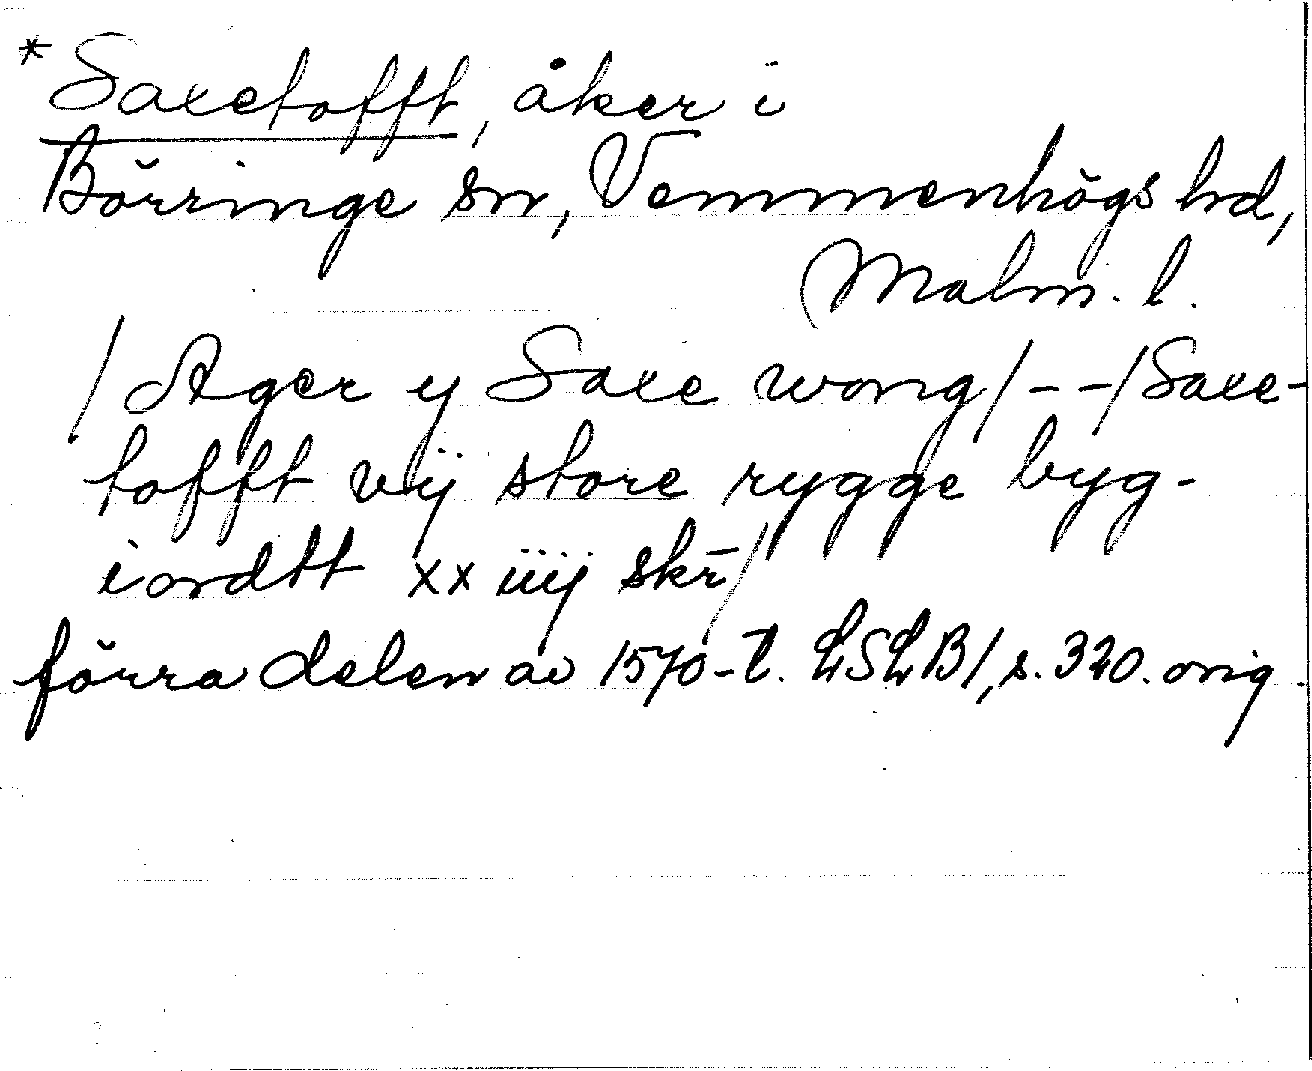 * Saxetofft, åker i
Börringe sn, Vemmenhögs hd,
Malm. l.
/ Ager y Saxe wong/--/Saxe-
tofft vÿ store rygge byg-
iordtt xx iiij skr̄/
förra delen av 1570-t. LSLB1, s. 320. orig.